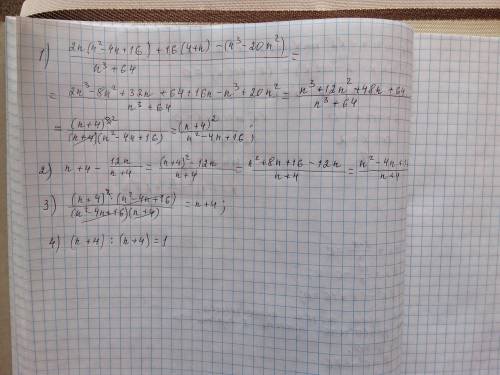 1) (2n(n²-4n+16)+16(4+n)-(n³-20n²))/(n³+64) =
= (2n³-8n²+32n+64+16n-n³+20n²)/(n³+64) = (n³+12n²+48n+64)/(n³+64)
= (n+4)³/((n+4)(n²-4n+16)) = (n+4)²/(n²-4n+16);
2) n+4 - 12n/(n+4) = ((n+4)²-12n)/(n+4) = (n²+8n+16-12n)/(n+4) = (n²-4n+16)/(n+4)
3) ((n+4)²·(n²-4n+16))/((n²-4n+16)(n+4)) = n+4;
4) (n+4) : (n+4) = 1